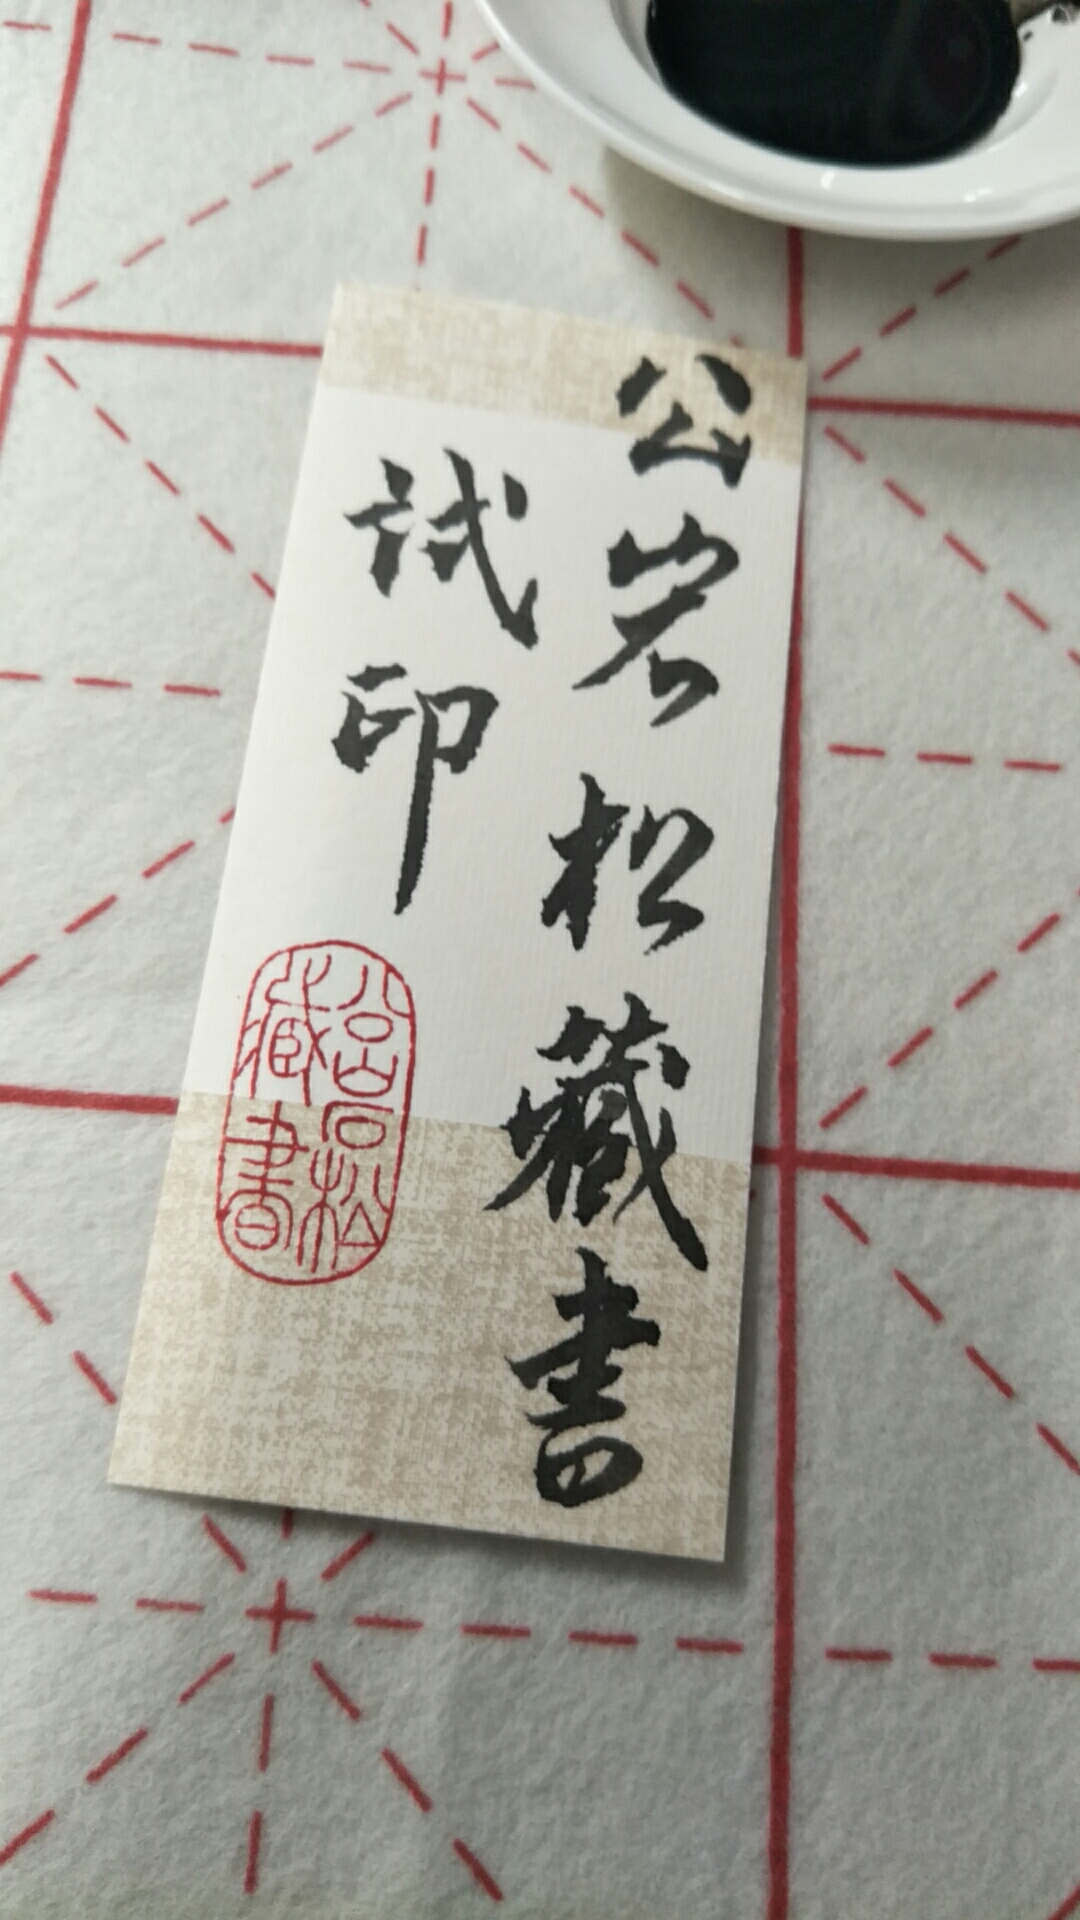 公岩松藏書
試印
公岩松藏書